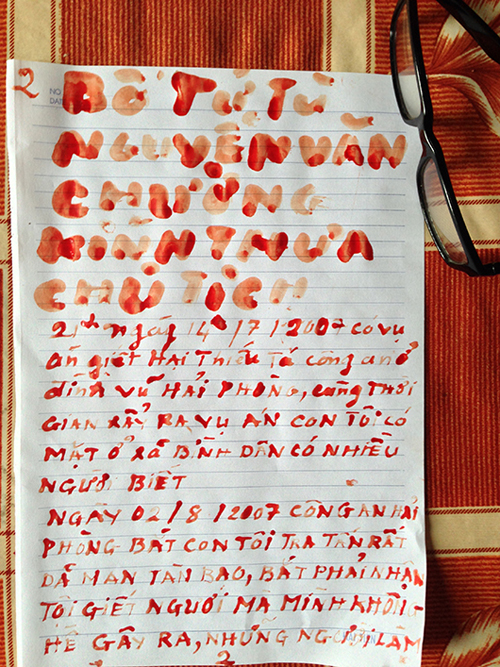 2
NO
DAT
BỐ TỬ TÙ
NGUYỄN VĂN
CHƯỞNG
KÍNH THƯA
CHỦ TỊCH
21h ngày 14/7/2007 có vụ
án giết HẠI Thiếu Tá công an ở
đình vũ HẢI PHÒNG, cùng THỜI
GIAN XẨY RA VỤ ÁN CON TÔI CÓ
MẶT Ở XÃ BÌNH DÂN CÓ NHIỀU
NGƯỜI BIẾT
NGÀY 02/8/2007 CÔNG AN HẢI
PHÒNG BẮT CON TÔI TRA TẤN RẤT
DÃ MAN TÀN BẠO, BẮT PHẢI NHẬN
TỘI GIẾT NGƯỜI MÀ MÌNH KHÔNG
HỀ GÂY RA, NHỮNG NGƯỜI LÀM
2